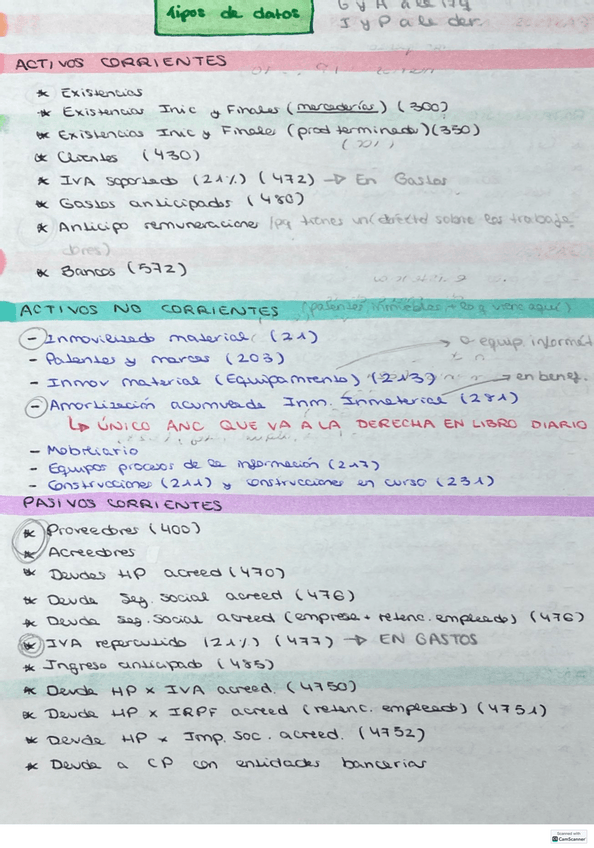 Tipos de datos
G y A a le izq
I y P a le der.
ACTIVOS CORRIENTES
* Existencias
* Existencias Inic y Finales (mercaderías) (300)
* Existencias Inic y Finales (prod terminado) (350)
* Clientes (430)
* IVA soportado (21%) (472) → En Gastos
* Gastos anticipados (480)
* Anticipo remuneraciones /pq tienes un (directo) sobre los trabaja
dores)
* Bancos (572)
ACTIVOS NO CORRIENTES (patentes, inmuebles
- Inmovilizado material (21)
→ o equip. informát
- Patentes y marcas (203)
- Inmov material (Equipamiento) (213)
→ en benef.
- Amortización acumulada Inm. Inmaterial (281)
↳ ÚNICO ANC QUE VA A LA DERECHA EN LIBRO DIARIO
- Mobiliario
- Equipos procesos de la información (217)
- Construcciones (211) y construcciones en curso (231)
PASIVOS CORRIENTES
* Proveedores (400)
* Acreedores
* Deudas HP acreed (470)
* Deuda Seg. Social acreed (476)
* Deuda Seg. Social acreed (empresa + retenc. empleado) (476)
* IVA repercutido (21%) (477) → EN GASTOS
* Ingreso anticipado (485)
* Deuda HP x IVA acreed. (4750)
* Deuda HP x IRPF acreed (retenc. empleado) (4751)
* Deuda HP x Imp. Soc. acreed. (4752)
* Deuda a CP con entidades bancarias
Scanned with
CamScanner